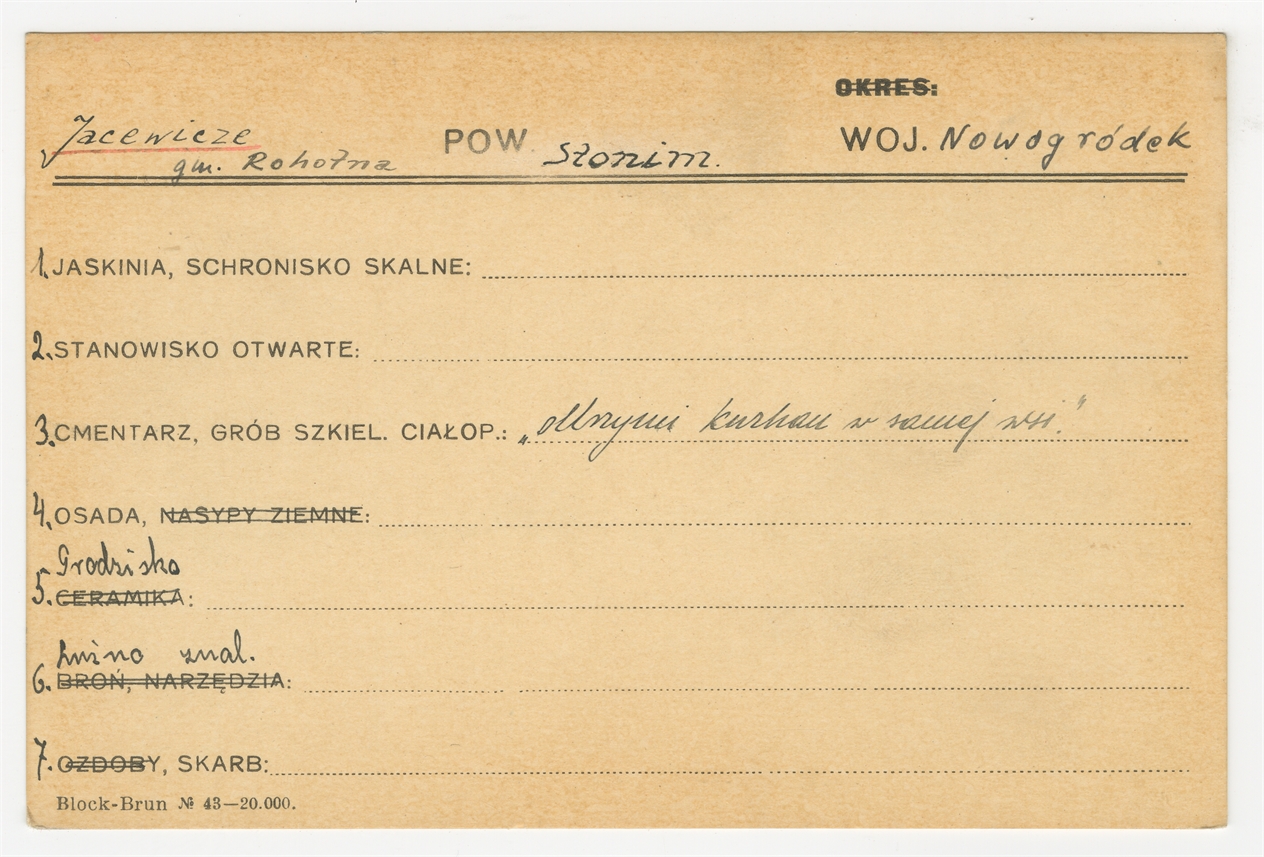 OKRES:
Jacewicze POW. Słonim. WOJ. Nowogródek
gm. Rohotna
1. JASKINIA, SCHRONISKO SKALNE:
2. STANOWISKO OTWARTE:
3. CMENTARZ, GRÓB SZKIEL. CIAŁOP.: „olbrzymi kurhan w samej wsi."
4. OSADA, NASYPY ZIEMNE:
Grodzisko
5. CERAMIKA:
Luźno znal.
6. BROŃ, NARZĘDZIA:
7. OZDOBY, SKARB:
Block-Brun № 43—20.000.